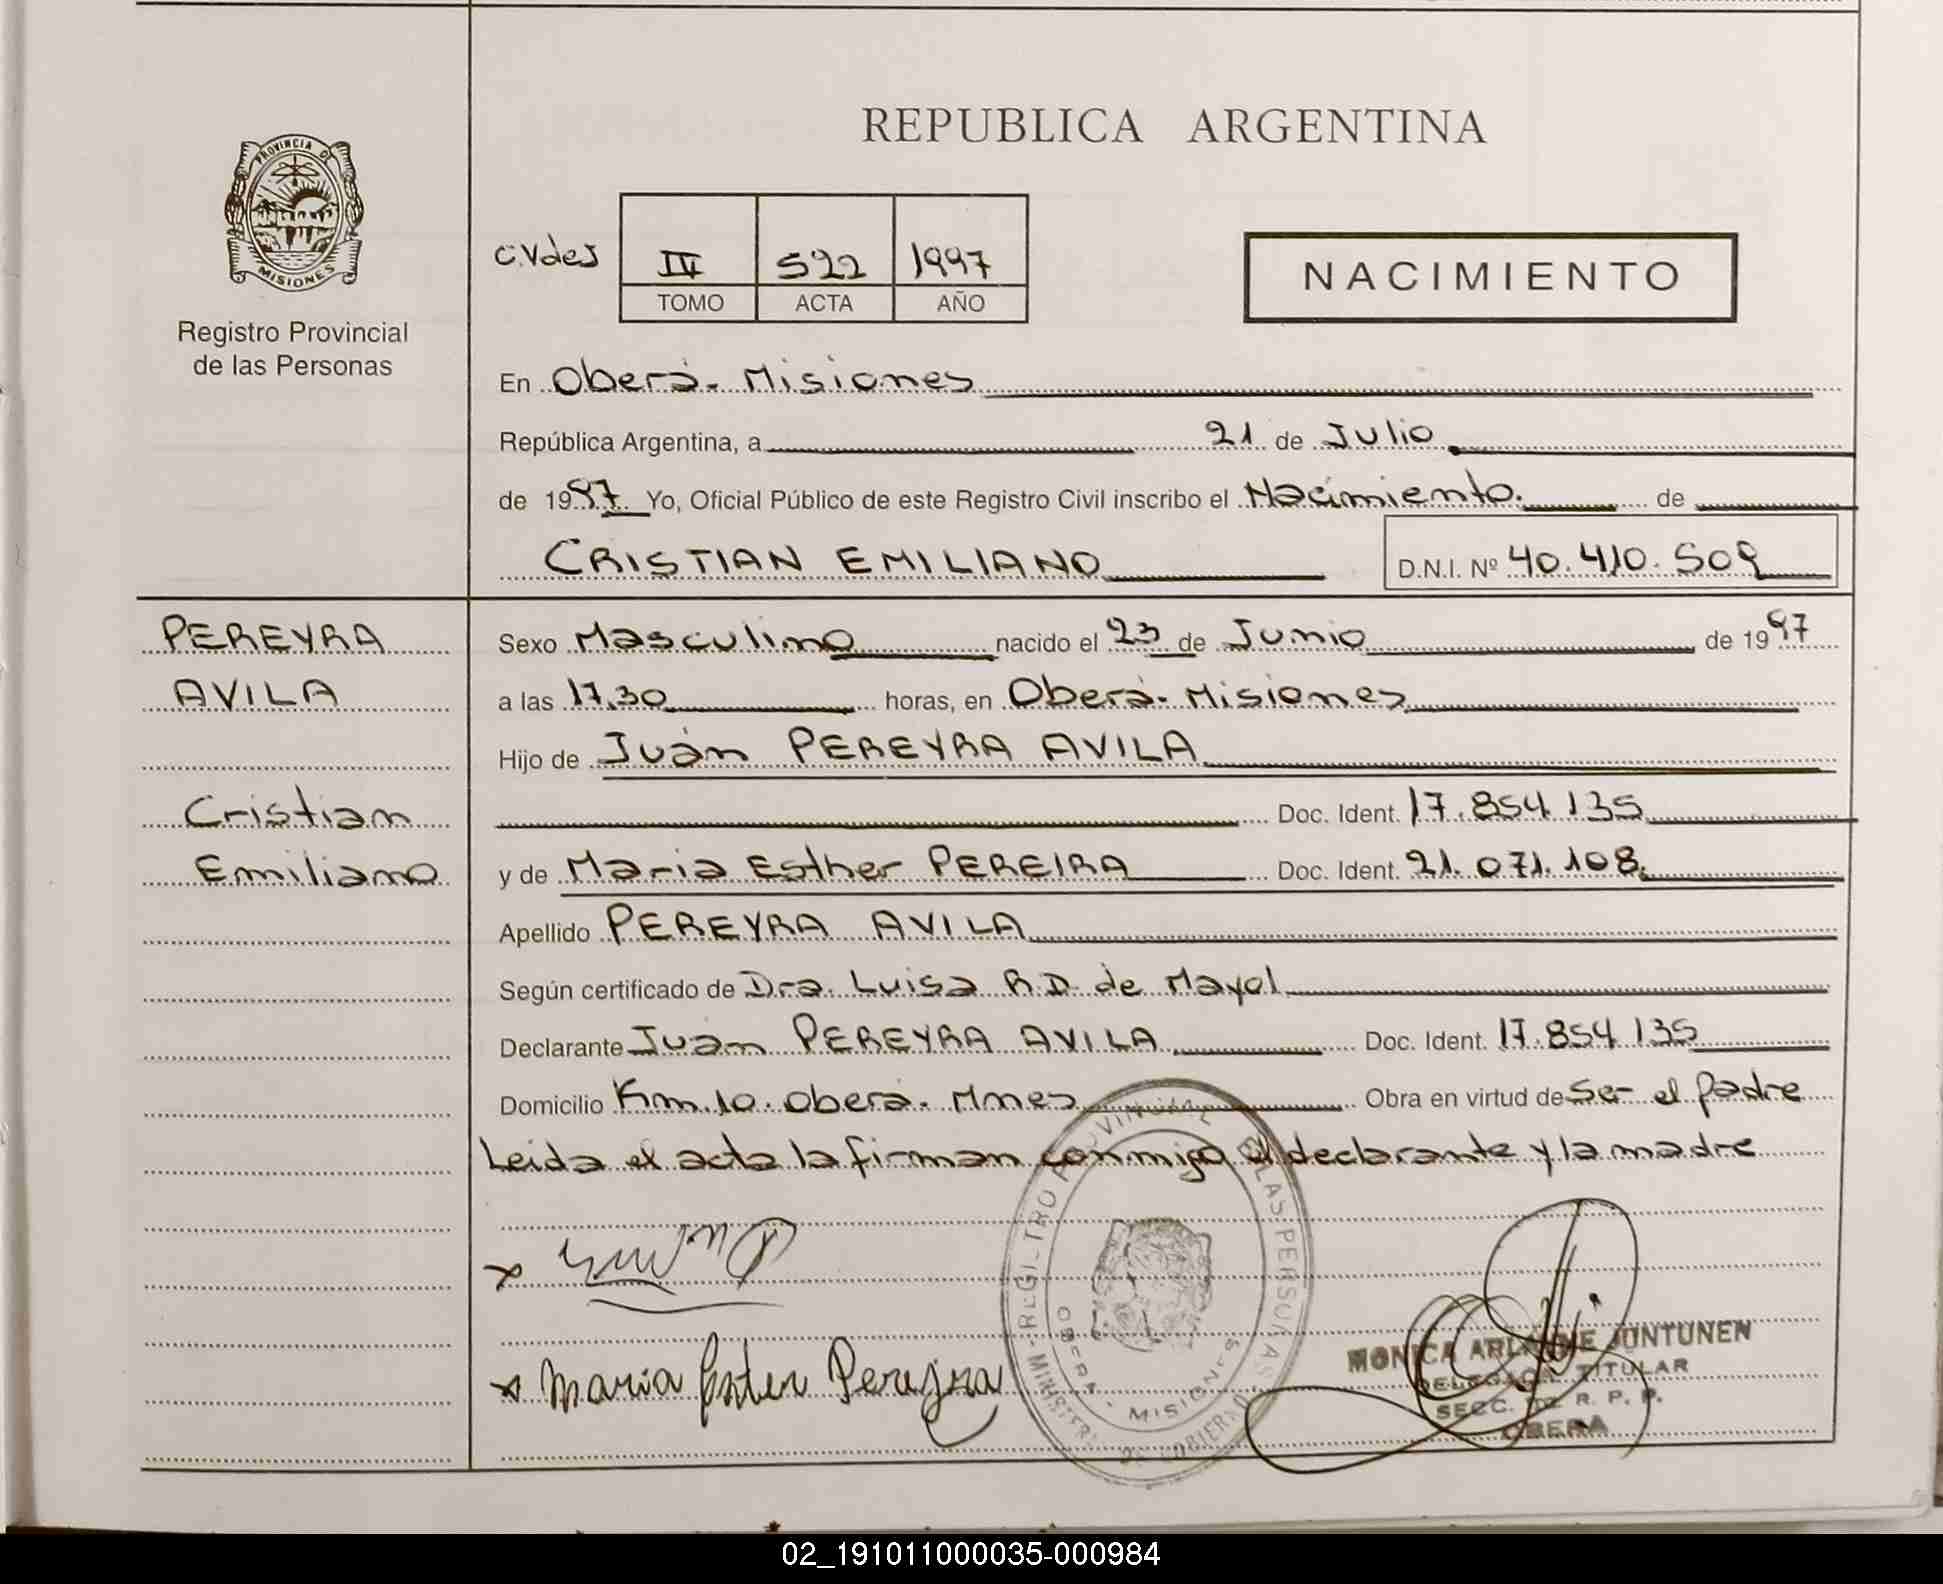 REPUBLICA ARGENTINA
PROVINCIA DE
MISIONES
Registro Provincial
de las Personas
C.VdeJ
IV 522 1997
TOMO ACTA AÑO
NACIMIENTO
En Oberá. Misiones
República Argentina, a 21 de Julio
de 1997 Yo, Oficial Público de este Registro Civil inscribo el Nacimiento. de
CRISTIAN EMILIANO D.N.I. Nº 40.410.509
PEREYRA
AVILA
Cristian
Emiliano
Sexo Masculino nacido el 23 de Junio de 1997
a las 17,30 horas, en Oberá. Misiones
Hijo de Juán PEREYRA AVILA
Doc. Ident. 17.854.135
y de Maria Esther PEREIRA Doc. Ident. 21.071.108.
Apellido PEREYRA AVILA
Según certificado de Dra. Luisa R.D. de Mayol
Declarante Juán PEREYRA AVILA Doc. Ident. 17.854.135
Domicilio Km.10. Oberá. Mnes Obra en virtud de Ser el padre
Leida el acta la firman conmigo el declarante y la madre
x
x Maria Ester Pereyra
REGISTRO PROVINCIAL DE LAS PERSONAS
OBERA - MISIONES
MINISTERIO DE GOBIERNO
MONICA ARIADNE JUNTUNEN
DELEGADA TITULAR
SECC. DE R. P. P.
OBERA
02_191011000035-000984